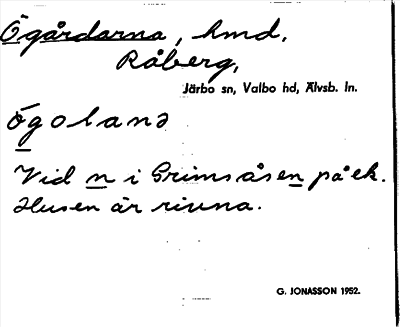 Ögårdarna, hmd,
Råberg,
Järbo sn, Valbo hd, Älvsb. ln.
ögolanə
Vid n i Grimsåsen på ek.
Husen är rivna.
G. JONASSON 1952.